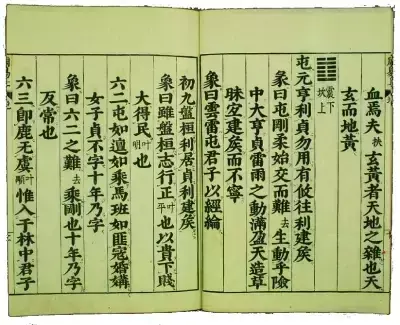 血焉夫扶玄黃者天地之雜也天
玄而地黃
䷂震下坎上
屯元亨利貞勿用有攸往利建矦
彖曰屯剛柔始交而難去生動乎險
中大亨貞雷雨之動滿盈天造草
昧宜建矦而不寧
象曰雲雷屯君子以經綸
初九盤桓利居貞利建矦
象曰雖盤桓志行正叶平也以貴下賤
大得民也
六二屯如邅如乘馬班如匪寇婚媾
女子貞不字十年乃字
象曰六二之難去乘剛也十年乃字
反常也
六三即鹿无虞惟入于林中君子